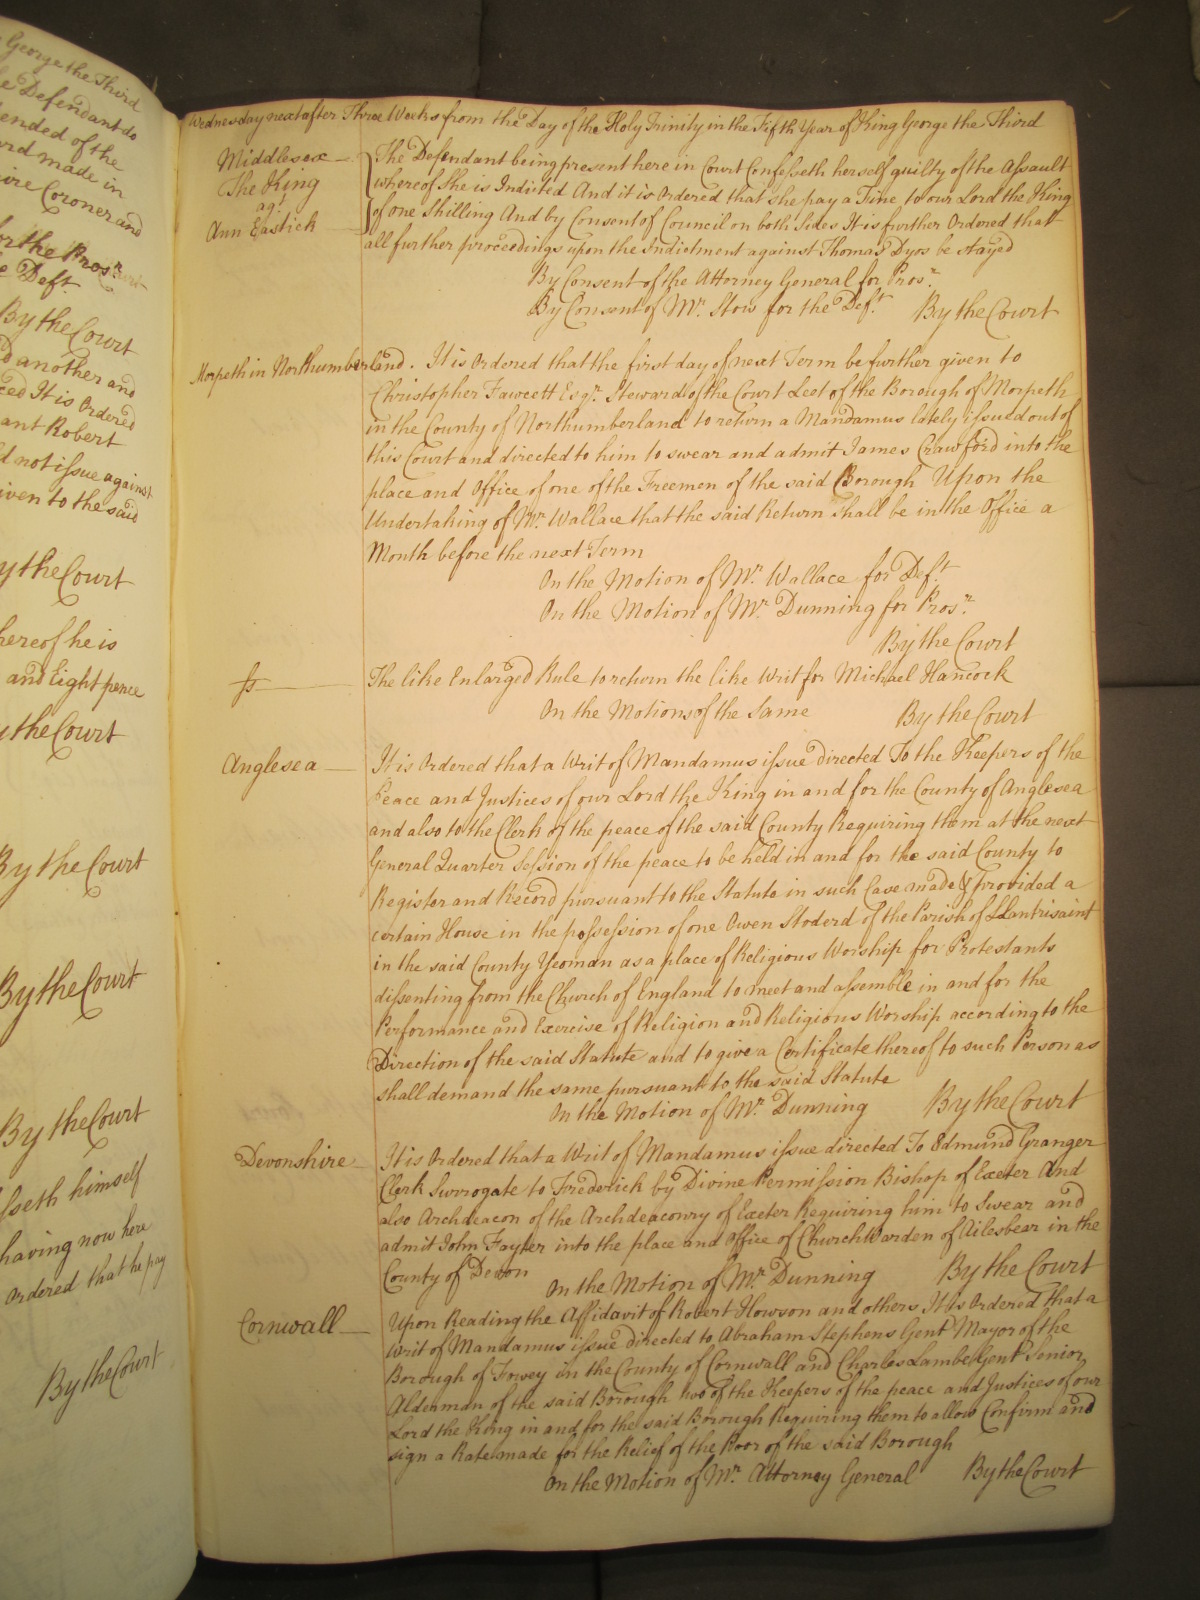 George the Third
Defendant do
ended of the
made in
Coroner and
for the Prosr.
Deft.
By the Court
another and
It is Ordered
ant Robert
not issue against
iven to the said
By the Court
hereof he is
and Eight pence
By the Court
By the Court
By the Court
By the Court
sseth himself
having now here
Ordered that he pay
By the Court
Wednesday next after Three Weeks from the Day of the Holy Trinity in the Fifth Year of King George the Third
Middlesex
The King
agt.
Ann Eastick
The Defendant being present here in Court Confesseth herself guilty of the Assault
whereof she is Indicted And it is Ordered that she pay a Fine to our Lord the King
of one Shilling And by Consent of Council on both Sides It is further Ordered that
all further proceedings upon the Indictment against Thomas Dyos be stayed
By Consent of the Attorney General for Prosr.
By Consent of Mr. Stow for the Deft. By the Court
Morpeth in Northumberland. It is Ordered that the first day of next Term be further given to
Christopher Fawcett Esqr. Steward of the Court Leet of the Borough of Morpeth
in the County of Northumberland to return a Mandamus lately issued out of
this Court and directed to him to swear and admit James Crawford into the
place and Office of one of the Freemen of the said Borough Upon the
Undertaking of Mr. Wallace that the said Return shall be in the Office a
Month before the next Term
On the Motion of Mr. Wallace for Deft.
On the Motion of Mr. Dunning for Prosr.
By the Court
ss
The like Enlarged Rule to return the like Writ for Michael Hancock
On the Motions of the Same By the Court
Anglesea
It is Ordered that a Writ of Mandamus issue directed To the Keepers of the
Peace and Justices of our Lord the King in and for the County of Anglesea
and also to the Clerk of the peace of the said County Requiring them at the next
General Quarter Session of the peace to be held in and for the said County to
Register and Record pursuant to the Statute in such Case made & provided a
certain House in the possession of one Owen Stoderd of the Parish of LLantrisaint
in the said County Yeoman as a place of Religious Worship for Protestants
dissenting from the Church of England to meet and assemble in and for the
Performance and Exercise of Religion and Religious Worship according to the
Direction of the said Statute and to give a Certificate thereof to such Person as
shall demand the same pursuant to the said Statute
On the Motion of Mr. Dunning By the Court
Devonshire
It is Ordered that a Writ of Mandamus issue directed To Edmund Granger
Clerk Surrogate to Frederick by Divine Permission Bishop of Exeter And
also Archdeacon of the Archdeaconry of Exeter Requiring him to Swear and
admit John Fayter into the place and Office of ChurchWarden of Ailesbear in the
County of Devon
On the Motion of Mr. Dunning By the Court
Cornwall
Upon Reading the Affidavit of Robert Howson and others It is Ordered that a
Writ of Mandamus issue directed to Abraham Stephens Gent Mayor of the
Borough of Fowey in the County of Cornwall and Charles Lambe Gent Senior
Alderman of the said Borough two of the Keepers of the peace and Justices of our
Lord the King in and for the said Borough Requiring them to allow Confirm and
sign a Rate made for the Relief of the Poor of the said Borough
On the Motion of Mr. Attorney General By the Court